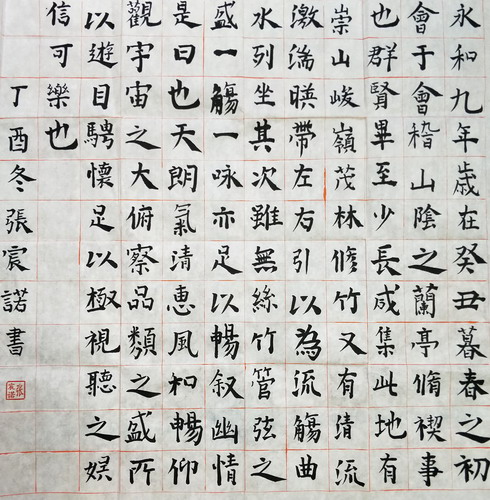 永和九年歲在癸丑暮春之初
會于會稽山陰之蘭亭脩禊事
也群賢畢至少長咸集此地有
崇山峻嶺茂林脩竹又有清流
激湍暎帶左右引以為流觴曲
水列坐其次雖無絲竹管弦之
盛一觴一咏亦足以暢叙幽情
是日也天朗氣清惠風和暢仰
觀宇宙之大俯察品類之盛所
以遊目騁懷足以極視聽之娱
信可樂也
丁酉冬張宸諾書
張宸諾